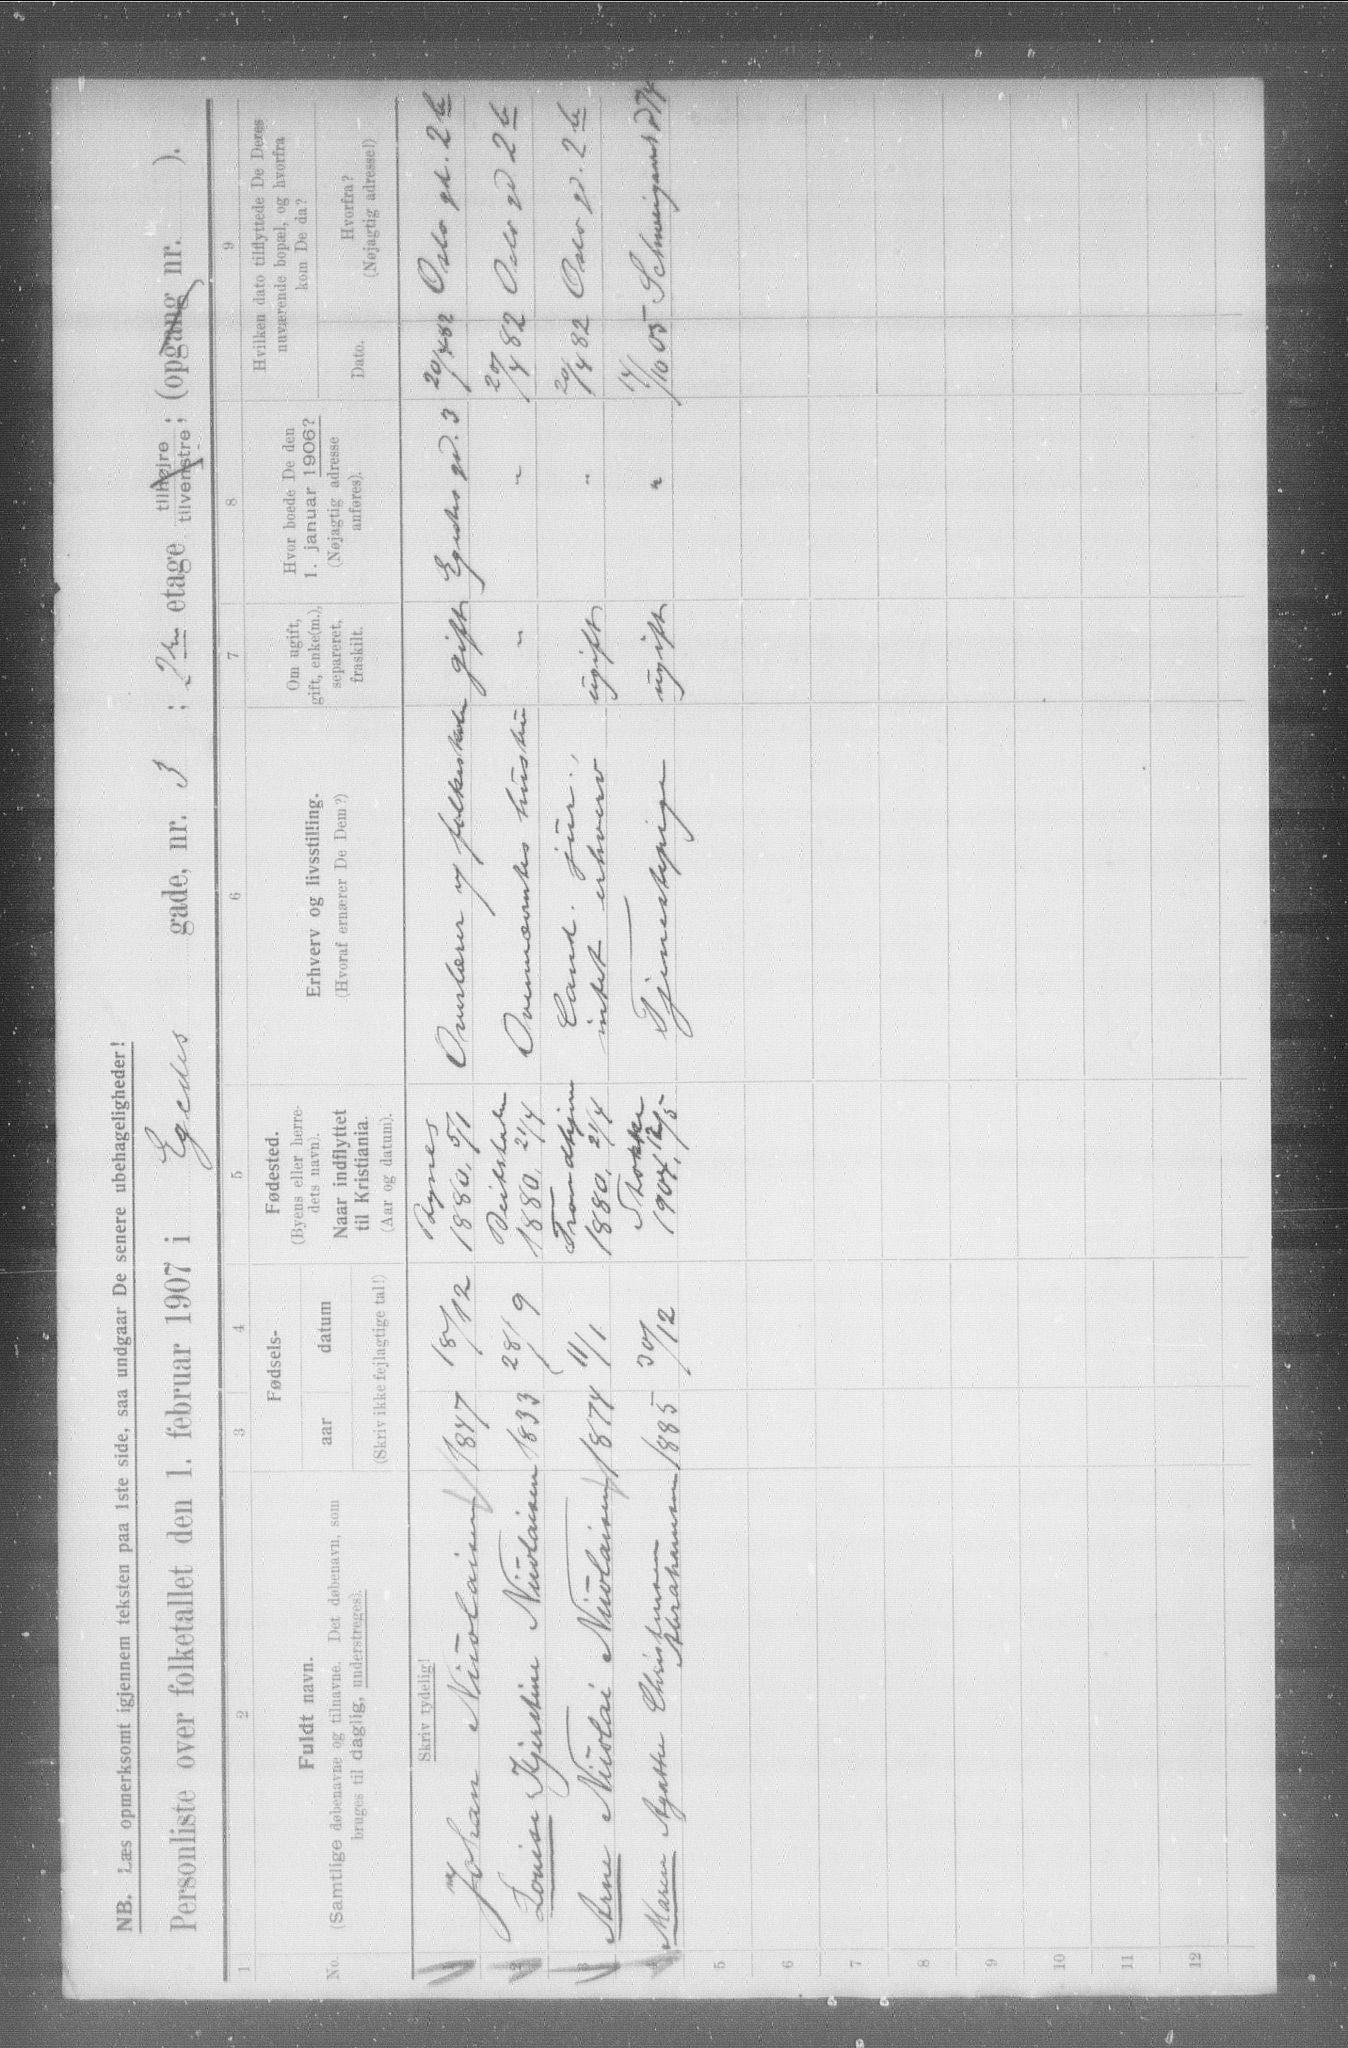 NB. Læs opmerksomt igjennem teksten paa 1ste side, saa undgaar De senere ubehageligheder!
Personliste over folketallet den 1. februar 1907 i Egedes gade, nr. 3; 2den etage tilhøjre tilvenstre; (opgang nr. ).
1 2 3 4 5 6 7 8 9
No.
Fuldt navn.
(Samtlige døbenavne og tilnavne. Det døbenavn, som
bruges til daglig, understreges).
Fødsels-
aar datum
(Skriv ikke fejlagtige tal!)
Fødested.
(Byens eller herre-
dets navn).
Naar indflyttet
til Kristiania.
(Aar og datum).
Erhverv og livsstilling.
(Hvoraf ernærer De Dem?)
Om ugift,
gift, enke(m.),
separeret,
fraskilt.
Hvor boede De den
1. januar 1906?
(Nøjagtig adresse
anføres).
Hvilken dato tilflyttede De Deres
nuværende bopæl, og hvorfra
kom De da?
Dato.
Hvorfra?
(Nøjagtig adresse!)
Skriv tydelig!
Johan Nicolaisen 1847 18/12 Bynes 1880, 5/1 Overlærer v/ folkeskolen gift Egedes gd. 3 20/4 82 Oslo gd. 2 b
Louise Kjerstine Nicolaisen 1833 28/9 1880, 21/4 Overlærerens hustru " 20/4 82 Oslo gd 2 b
Arne Nicolai Nicolaisen 1874 11/1 Trondhjem 1880, 21/4 Cand. jur., intet erhverv ugift " 20/4 82 Oslo gd. 2 b
Maren Agathe Christensen Abrahamsen 1885 30/12 Stokke 1904, 12/5 Tjenestepige ugift " 14/10 05 Schweigaardsgd 74
5
6
7
8
9
10
11
12